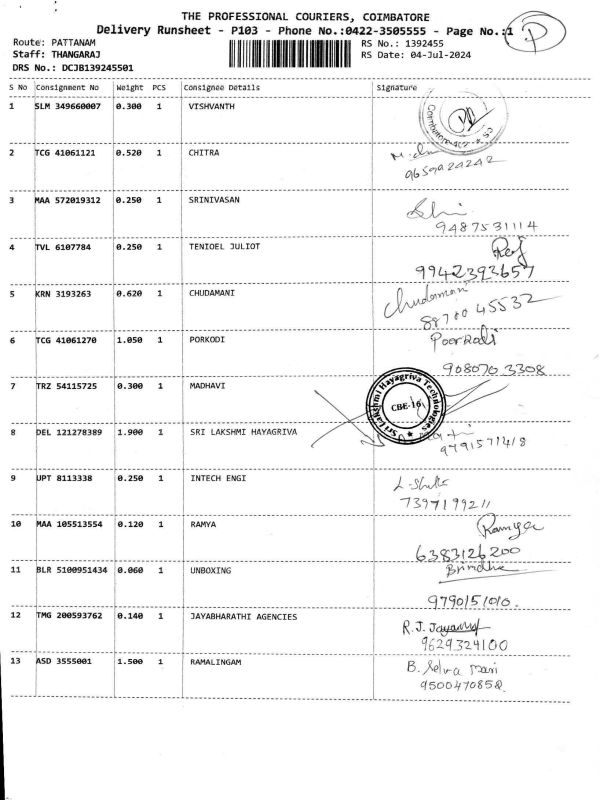 THE PROFESSIONAL COURIERS, COIMBATORE
Delivery Runsheet - P103 - Phone No.:0422-3505555 - Page No.:1 P
Route: PATTANAM RS No.: 1392455
Staff: THANGARAJ RS Date: 04-Jul-2024
DRS No.: DCJB139245501
S No Consignment No Weight PCS Consignee Details Signature
1 SLM 349660007 0.300 1 VISHVANTH
2 TCG 41061121 0.520 1 CHITRA
9659a24242
3 MAA 572019312 0.250 1 SRINIVASAN
9487531114
4 TVL 6107784 0.250 1 TENIOEL JULIOT
9942393657
5 KRN 3193263 0.620 1 CHUDAMANI Chudamani
887045532
6 TCG 41061270 1.050 1 PORKODI Poorkodi
908070 3308
7 TRZ 54115725 0.300 1 MADHAVI
Sri Lakshmi Hayagriva Technologies
CBE-16
8 DEL 121278389 1.900 1 SRI LAKSHMI HAYAGRIVA
9791571418
9 UPT 8113338 0.250 1 INTECH ENGI
7397199211
10 MAA 105513554 0.120 1 RAMYA Ramya
6383126200
11 BLR 5100951434 0.060 1 UNBOXING Brindha
9790151010.
12 TMG 200593762 0.140 1 JAYABHARATHI AGENCIES
R.J.
9629324100
13 ASD 3555001 1.500 1 RAMALINGAM B. Selva Mari
9500470858